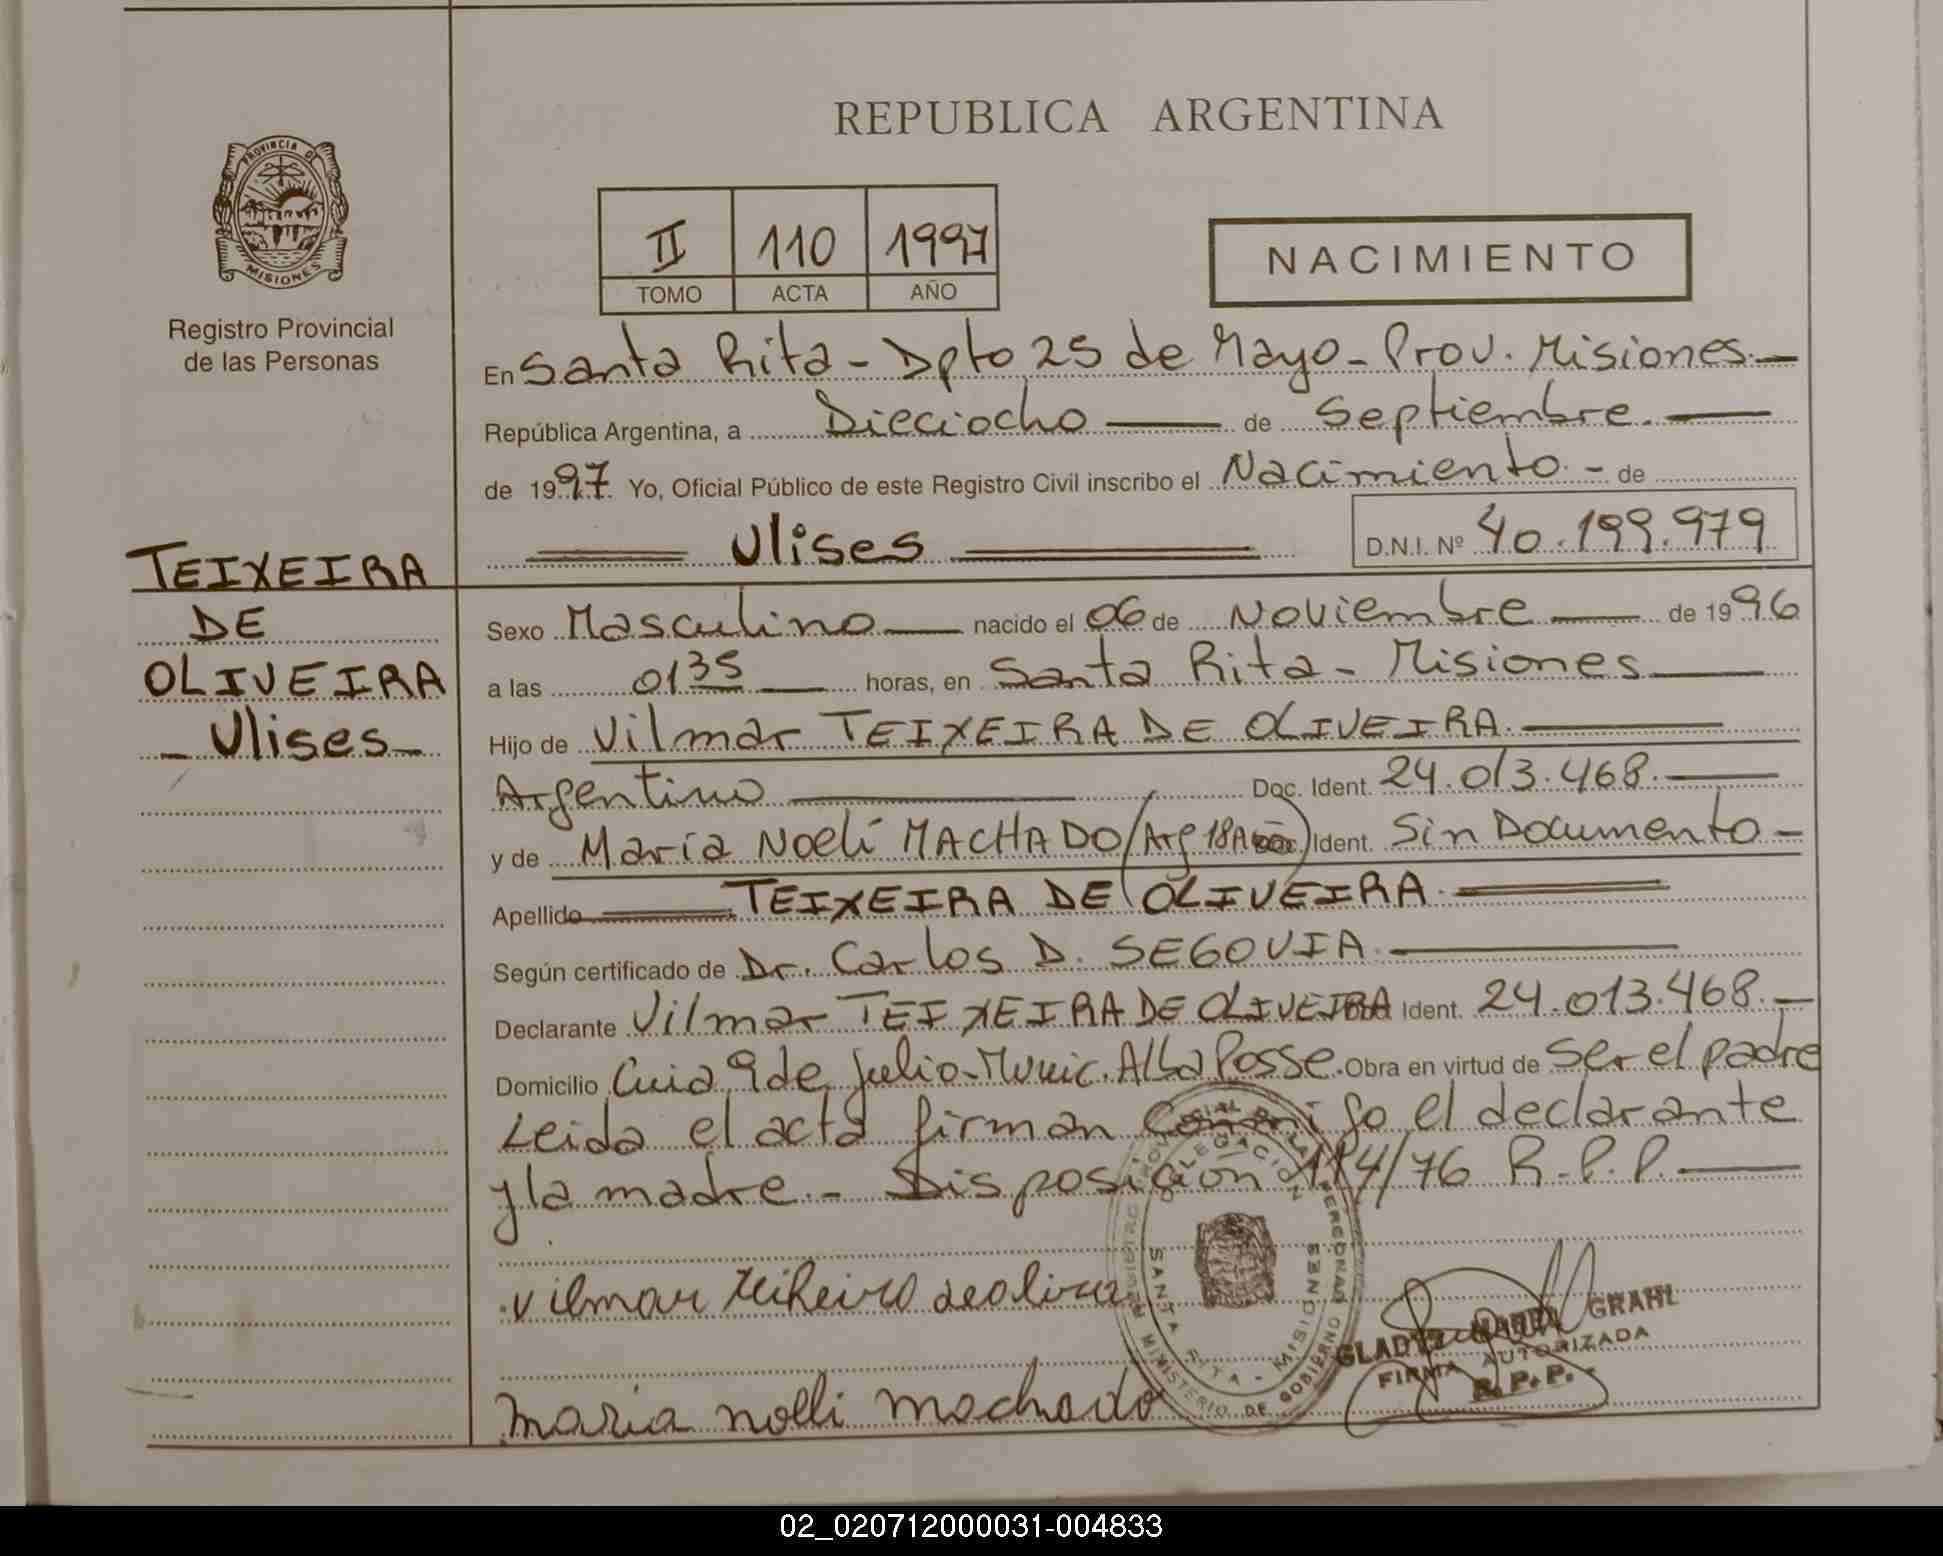 REPUBLICA ARGENTINA
PROVINCIA DE
MISIONES
Registro Provincial
de las Personas
II 110 1997
TOMO ACTA AÑO
NACIMIENTO
En Santa Rita - Dpto 25 de Mayo - Prov. Misiones.—
República Argentina, a Dieciocho — de Septiembre. —
de 1997. Yo, Oficial Público de este Registro Civil inscribo el Nacimiento. - de
Ulises
D.N.I. Nº 40.199.979
TEIXEIRA
DE
OLIVEIRA
- Ulises -
Sexo Masculino — nacido el 06 de Noviembre — de 1996
a las 0135 — horas, en Santa Rita - Misiones —
Hijo de Vilmar TEIXEIRA DE OLIVEIRA. —
Argentino — Doc. Ident. 24.013.468. —
y de María Noelí MACHADO (Arg 18A) Ident. Sin Documento -
Apellido — TEIXEIRA DE OLIVEIRA. —
Según certificado de Dr. Carlos D. SEGOVIA. —
Declarante Vilmar TEIXEIRA DE OLIVEIRA Ident. 24.013.468. —
Domicilio Cnia 9 de Julio - Munic. Alba Posse. Obra en virtud de Ser el padre
Leida el acta firman conmigo el declarante
y la madre. - Disposición 114/76 R.P.P. —
DELEGACION
SANTA RITA - MISIONES
MINISTERIO DE GOBIERNO
GRAHL
FIRMA AUTORIZADA
R.P.P.
maria nolli machado
02_020712000031-004833